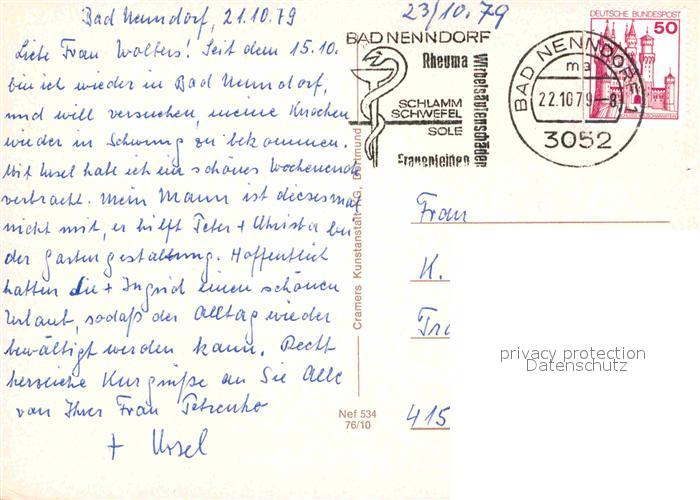 Bad Nenndorf, 21.10.79
Liebe Frau Wolters! Seit dem 15.10.
bin ich wieder in Bad Nenndorf,
und will versuchen, meine Knochen
wieder in Schwung zu bekommen.
Mit Ursel habe ich ein schönes Wochenende
verbracht. Mein Mann ist diesesmal
nicht mit, er hilft Peter + Christa bei
der Gartengestaltung. Hoffentlich
hatten Sie + Ingrid einen schönen
Urlaub, sodaß der Alltag wieder
bewältigt werden kann. Recht
herzliche Kurgrüße an Sie Alle
von Ihrer Frau
+ Ursel
23/10.79
BAD NENNDORF
Rheuma
Wirbelsäulenschäden
SCHLAMM
SCHWEFEL
SOLE
Frauenleiden
BAD NENNDORF 1
ma
22.10.79-8
3052
DEUTSCHE BUNDESPOST
50
Cramers Kunstanstalt KG, Dortmund
Nef 534
76/10
Frau
K.
415
privacy protection
Datenschutz